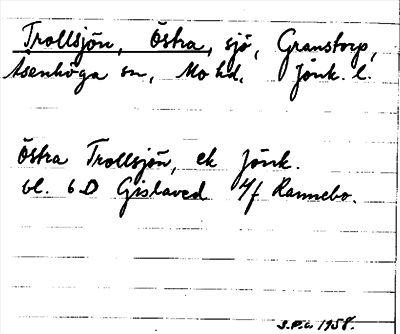 Trollsjön, Östra, sjö, Granstorp,
Åsenhöga sn, Mo hd, Jönk. l.
Östra Trollsjön, ek Jönk.
bl. 6 D Gislaved 4f Rannebo.
1958.